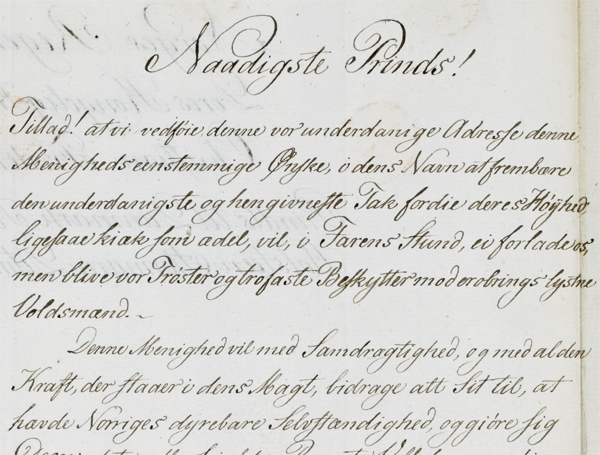 Naadigste Prinds!
Tillad! at vi vedføie denne vor underdanige Adresse denne
Menigheds eenstemmige Ønske, i dens Navn at frembære
den underdanigste og hengivneste Tak fordie deres Høyhed,
ligesaae kiæk som ædel, vil, i Farens Stund, ei forlade os,
men blive vor Trøster og trofaste Beskytter mod erobrings lystne
Voldsmænd. ~
Denne Menighed vil med Samdrægtighed, og med al den
Kraft, der staaer i dens Magt, bidrage alt Sit til, at
hævde Norriges dyrebare Selvstændighed, og giøre sig